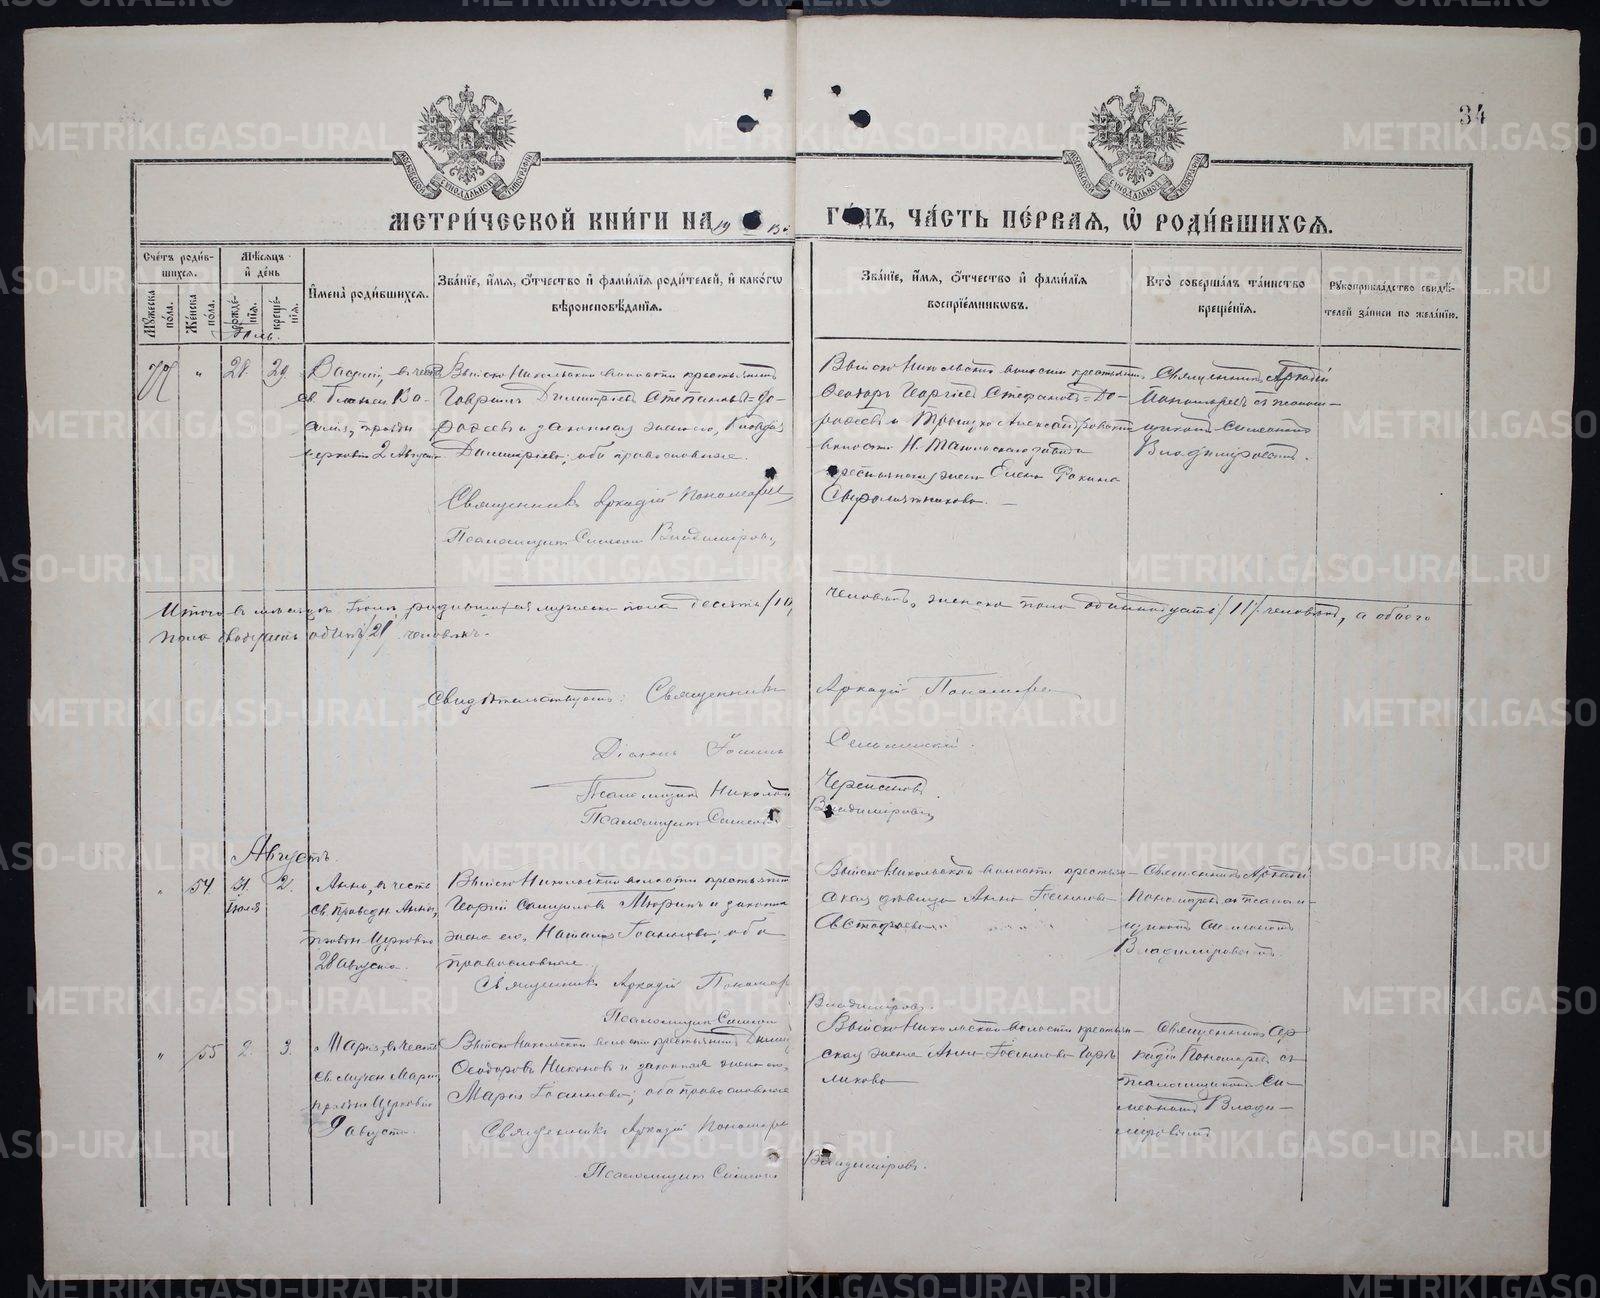 34
МОСКОВСКОЙ СѴНОДАЛЬНОЙ ТИПОГРАФІИ
МОСКОВСКОЙ СѴНОДАЛЬНОЙ ТИПОГРАФІИ
МЕТРИ́ЧЕСКОЙ КНИ́ГИ НА 19 ГО́ДЪ, ЧА́СТЬ ПЕ́РВАЯ, Ѽ РОДИ́ВШИХСЯ.
Сче́тъ роди́в-
шихся.
Мꙋ́жеска по́ла.
Же́нска по́ла.
Мѣ́сяцъ
и де́нь
рожде́-
нія.
креще́-
нія.
Имена̀ роди́вшихся.
Зва́ніе, и́мя, о́тчество и фами́лія роди́телей, и како́гѡ
вѣроисповѣ́данія.
Зва́ніе, и́мя, о́тчество и фами́лія
воспріе́мниковъ.
Кто̀ соверша́лъ та́инство
креще́нія.
Рꙋкоприкла́дство свидѣ́-
телей за́писи по жела́нію.
Іюль.
77 „ 28. 29.
Василій, въ честь
св. Блажен. Ва-
силія, праздн.
церковію 2 Августа
Выйско-Никольской волости крестьянинъ
Гавріилъ Димитріевъ Степановъ=До-
рофеевъ и законная жена его,
Димитріева; оба православные.
Священникъ Аркадій Пономаревъ
Псаломщикъ Симеонъ Владиміровъ
Выйско-Никольской волости крестьянинъ
Ѳеодоръ Георгіевъ Стефановъ=До-
рофеевъ и Троицко-Александровской
волости Н. Тагильскаго завода
крестьянская жена Елена Фокина
Священникъ Аркадій
Пономаревъ съ псалом-
щикомъ Симеономъ
Владиміровымъ.
Итого въ мѣсяцѣ Іюлѣ родившихся мужеска пола десять /10/ человѣкъ, женска пола одиннадцать /11/ человѣкъ, а обоего
пола двадцать одинъ /21/ человѣкъ.
Свидѣтельствуютъ: Священникъ Аркадій Пономаревъ
Діаконъ Іоаннъ Сельменскій.
Псаломщикъ Николай
Псаломщикъ Симеонъ Владиміровъ
Августъ.
„ 54 31. Іюля 2.
Анна, въ честь
св. праведн. Анны,
праздн. Церковію
28 Августа.
Выйско-Никольской волости крестьянинъ
Георгій Самуиловъ Тюринъ и законная
жена его, Наталія Іоаннова; оба
православные.
Священникъ Аркадій Пономаревъ
Псаломщикъ Симеонъ Владиміровъ.
Выйско-Никольской волости крестьян-
ская дѣвица Анна Іоаннова
Астафьева.
Священникъ Аркадій
Пономаревъ съ псалом-
щикомъ Симеономъ
Владиміровымъ.
„ 55 2. 3.
Марія, въ честь
св. мучен. Маріи,
праздн. Церковію
9 августа.
Выйско-Никольской волости крестьянинъ
Ѳеодоровъ Никоновъ и законная жена его,
Марія Іоаннова; оба православные
Священникъ Аркадій Пономаревъ
Псаломщикъ Симеонъ Владиміровъ.
Выйско-Никольской волости крестьян-
ская жена Анна Іоаннова
Священникъ Ар-
кадій Пономаревъ съ
псаломщикомъ Си-
меономъ Влади-
міровымъ
METRIKI.GASO-URAL.RU